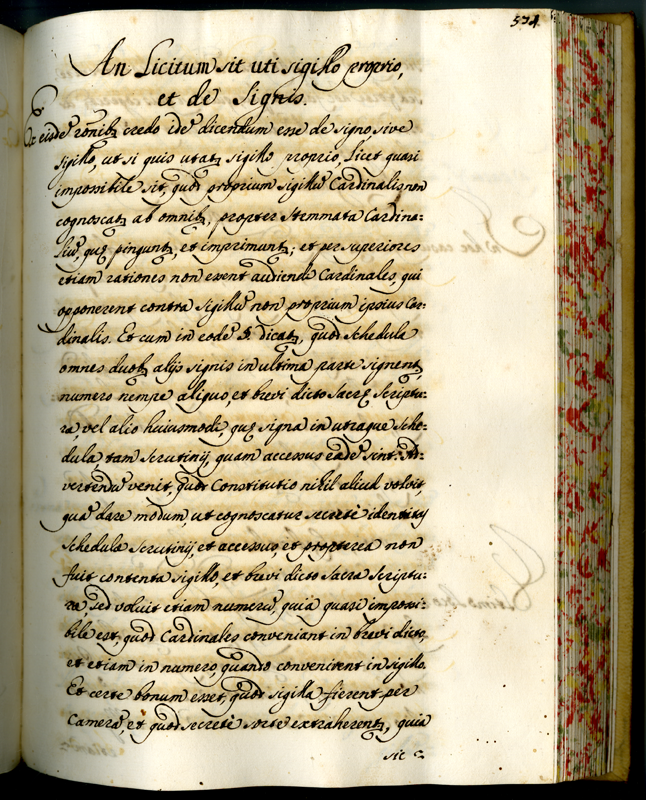 534.
An Licitum sit uti sigillo proprio,
et de Signis.
Ex eisdē rōnibꝫ credo idē dicendum esse de signo sive
sigillo, ut si quis utatꝫ sigillo proprio, licet quasi
impossibile sit, quod proprium sigillū Cardinalis non
cognoscatꝫ ab omnibꝫ, propter stemmata Cardina:
liū, quę pinguntꝫ, et imprimuntꝫ; et per superiores
etiam rationes non essent audiendi Cardinales, qui
opponerent contra sigillū non proprium ipsius Car:
dinalis. Et cum in eodē §. dicatꝫ, quod schedula
omnes duobꝫ alijs signis in ultima parte signentꝫ
numero nempe aliquo, et brevi dicto sacrę scriptu:
ra, vel alio huiusmodi, quę signa in utraque sche:
dula, tam scrutinij, quam accessus eadē sint: Ad:
vertendū venit, quod Constitutio nihil aliud voluit,
quā dare modum ut cognoscatur secretè identitas
schedula scrutinij, et accessus, et propterea non
fuit contenta sigillo, et brevi dicto sacra scriptu:
ra, sed voluit etiam numerū, quia quasi impossi:
bile est, quod Cardinales conveniant in brevi dicto,
et etiam in numero, quando convenirent in sigillo.
Et certe bonum esset, quod sigilla fierent per
Camerā, et quod secretè sorte extraherentꝫ, quia
sic